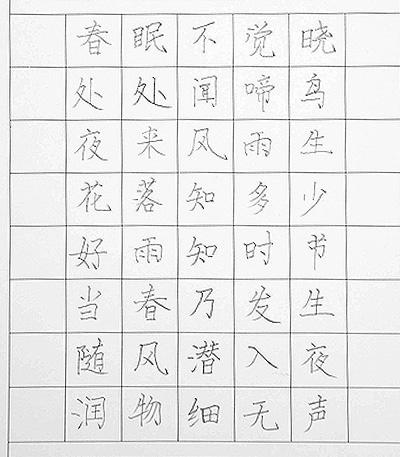 春眠不觉晓
处处闻啼鸟
夜来风雨生
花落知多少
好雨知时节
当春乃发生
随风潜入夜
润物细无声